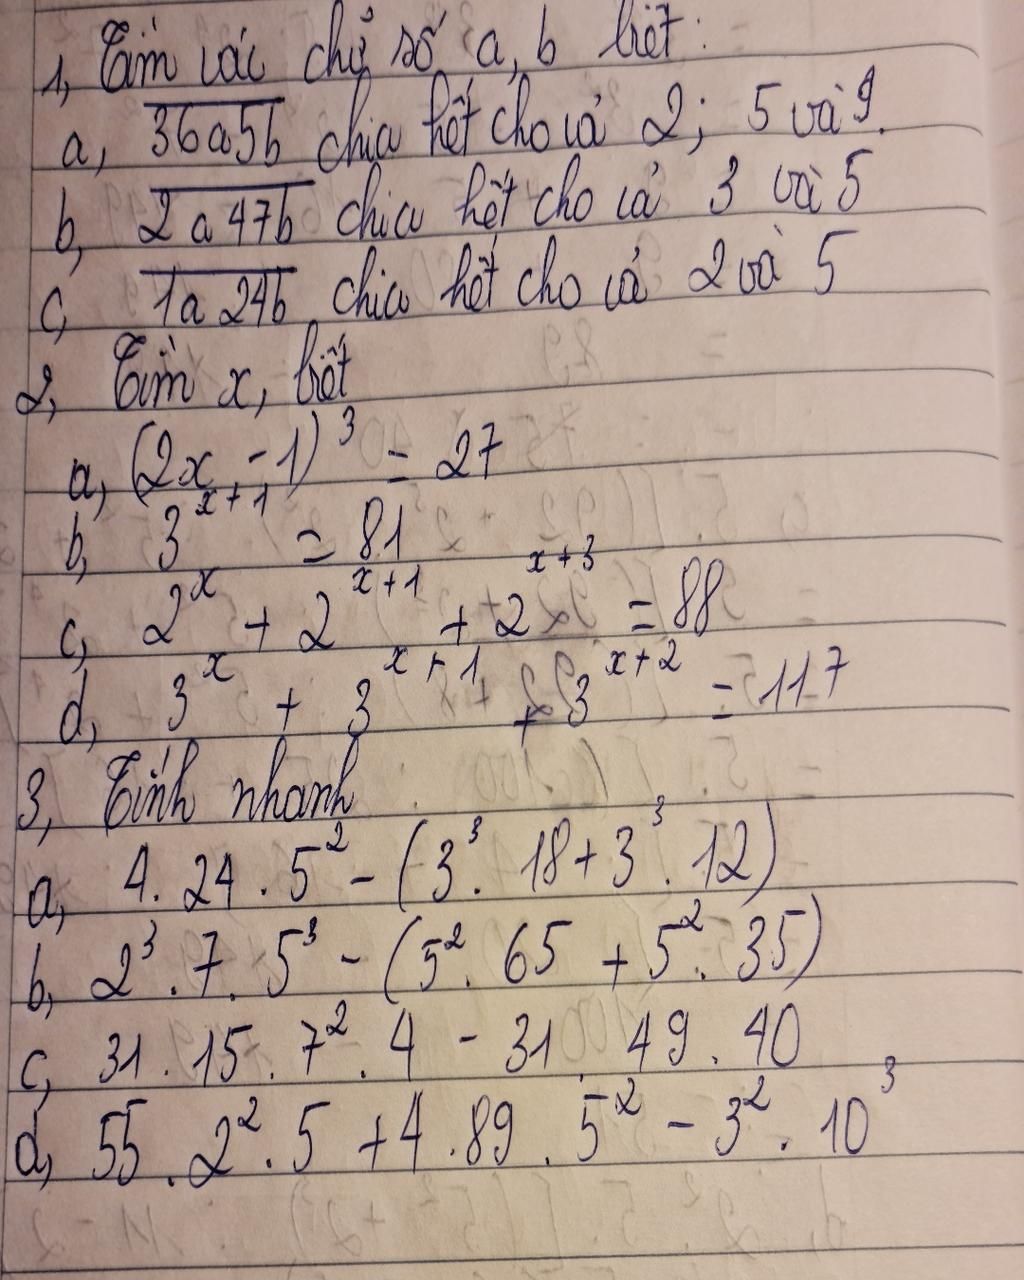 1, Tìm các chữ số a, b biết:
a, 36a5b chia hết cho cả 2; 5 và 9.
b, 2a47b chia hết cho cả 3 và 5
c, 1a24b chia hết cho cả 2 và 5
2, Tìm x, biết
a, (2x - 1)³ = 27
b, 3^(x+1) = 81
c, 2^x + 2^(x+1) + 2^(x+3) = 88
d, 3^x + 3^(x+1) + 3^(x+2) = 117
3, Tính nhanh
a, 4 . 24 . 5² - (3³ . 18 + 3³ . 12)
b, 2³ . 7 . 5³ - (5² . 65 + 5² . 35)
c, 31 . 15 . 7² . 4 - 31 . 49 . 40
d, 55 . 2² . 5 + 4 . 89 . 5² - 3² . 10³